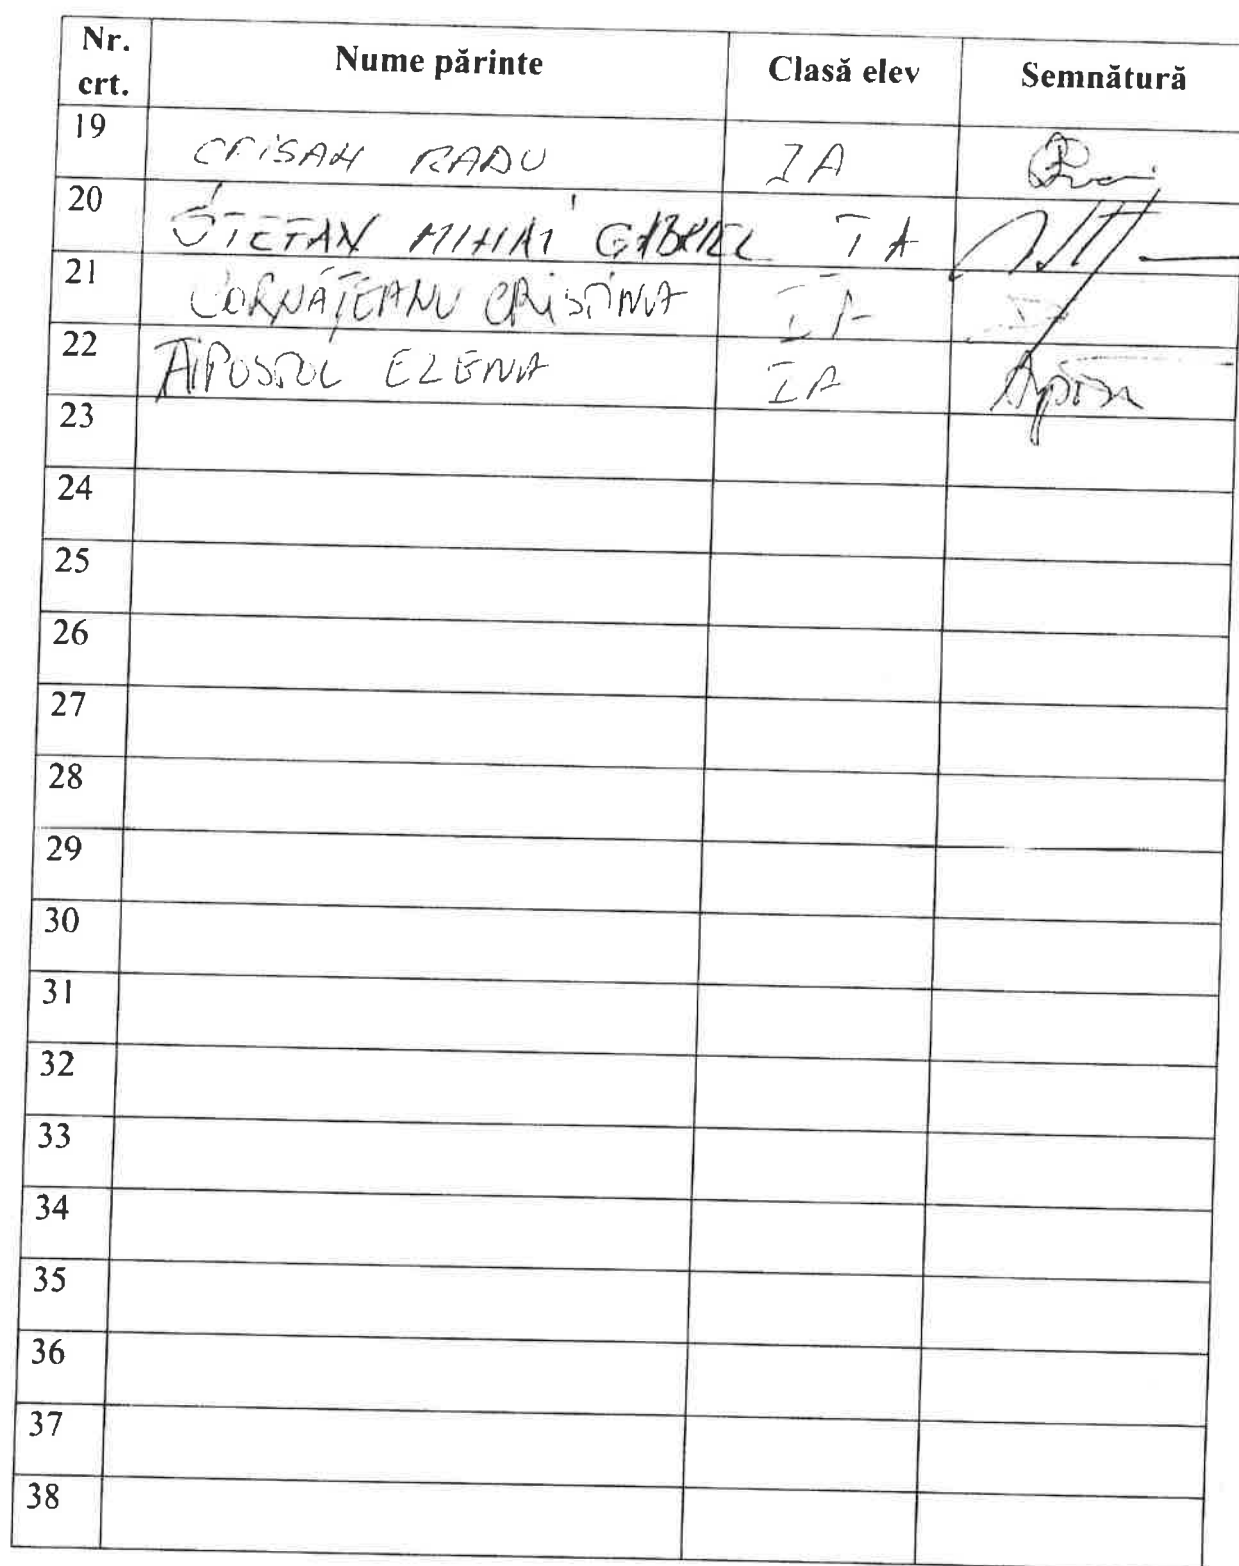 Nr. crt. Nume părinte Clasă elev Semnătură
19 CRISAN RADU IA
20 STEFAN MIHAI GABRIEL IA
21 CORNĂȚEANU CRISTINA IA
22 APOSTOL ELENA IA
23
24
25
26
27
28
29
30
31
32
33
34
35
36
37
38